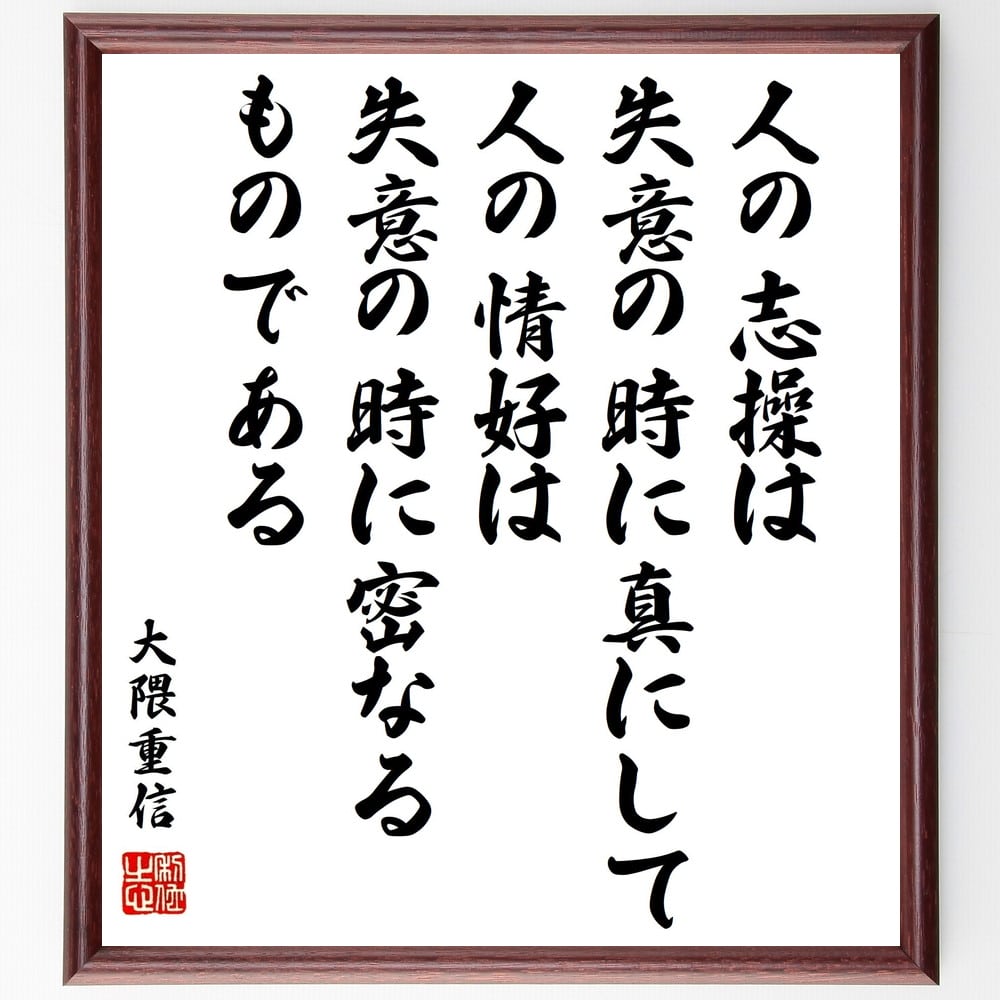 人の志操は
失意の時に真にして
人の情好は
失意の時に密なる
ものである
大隈重信